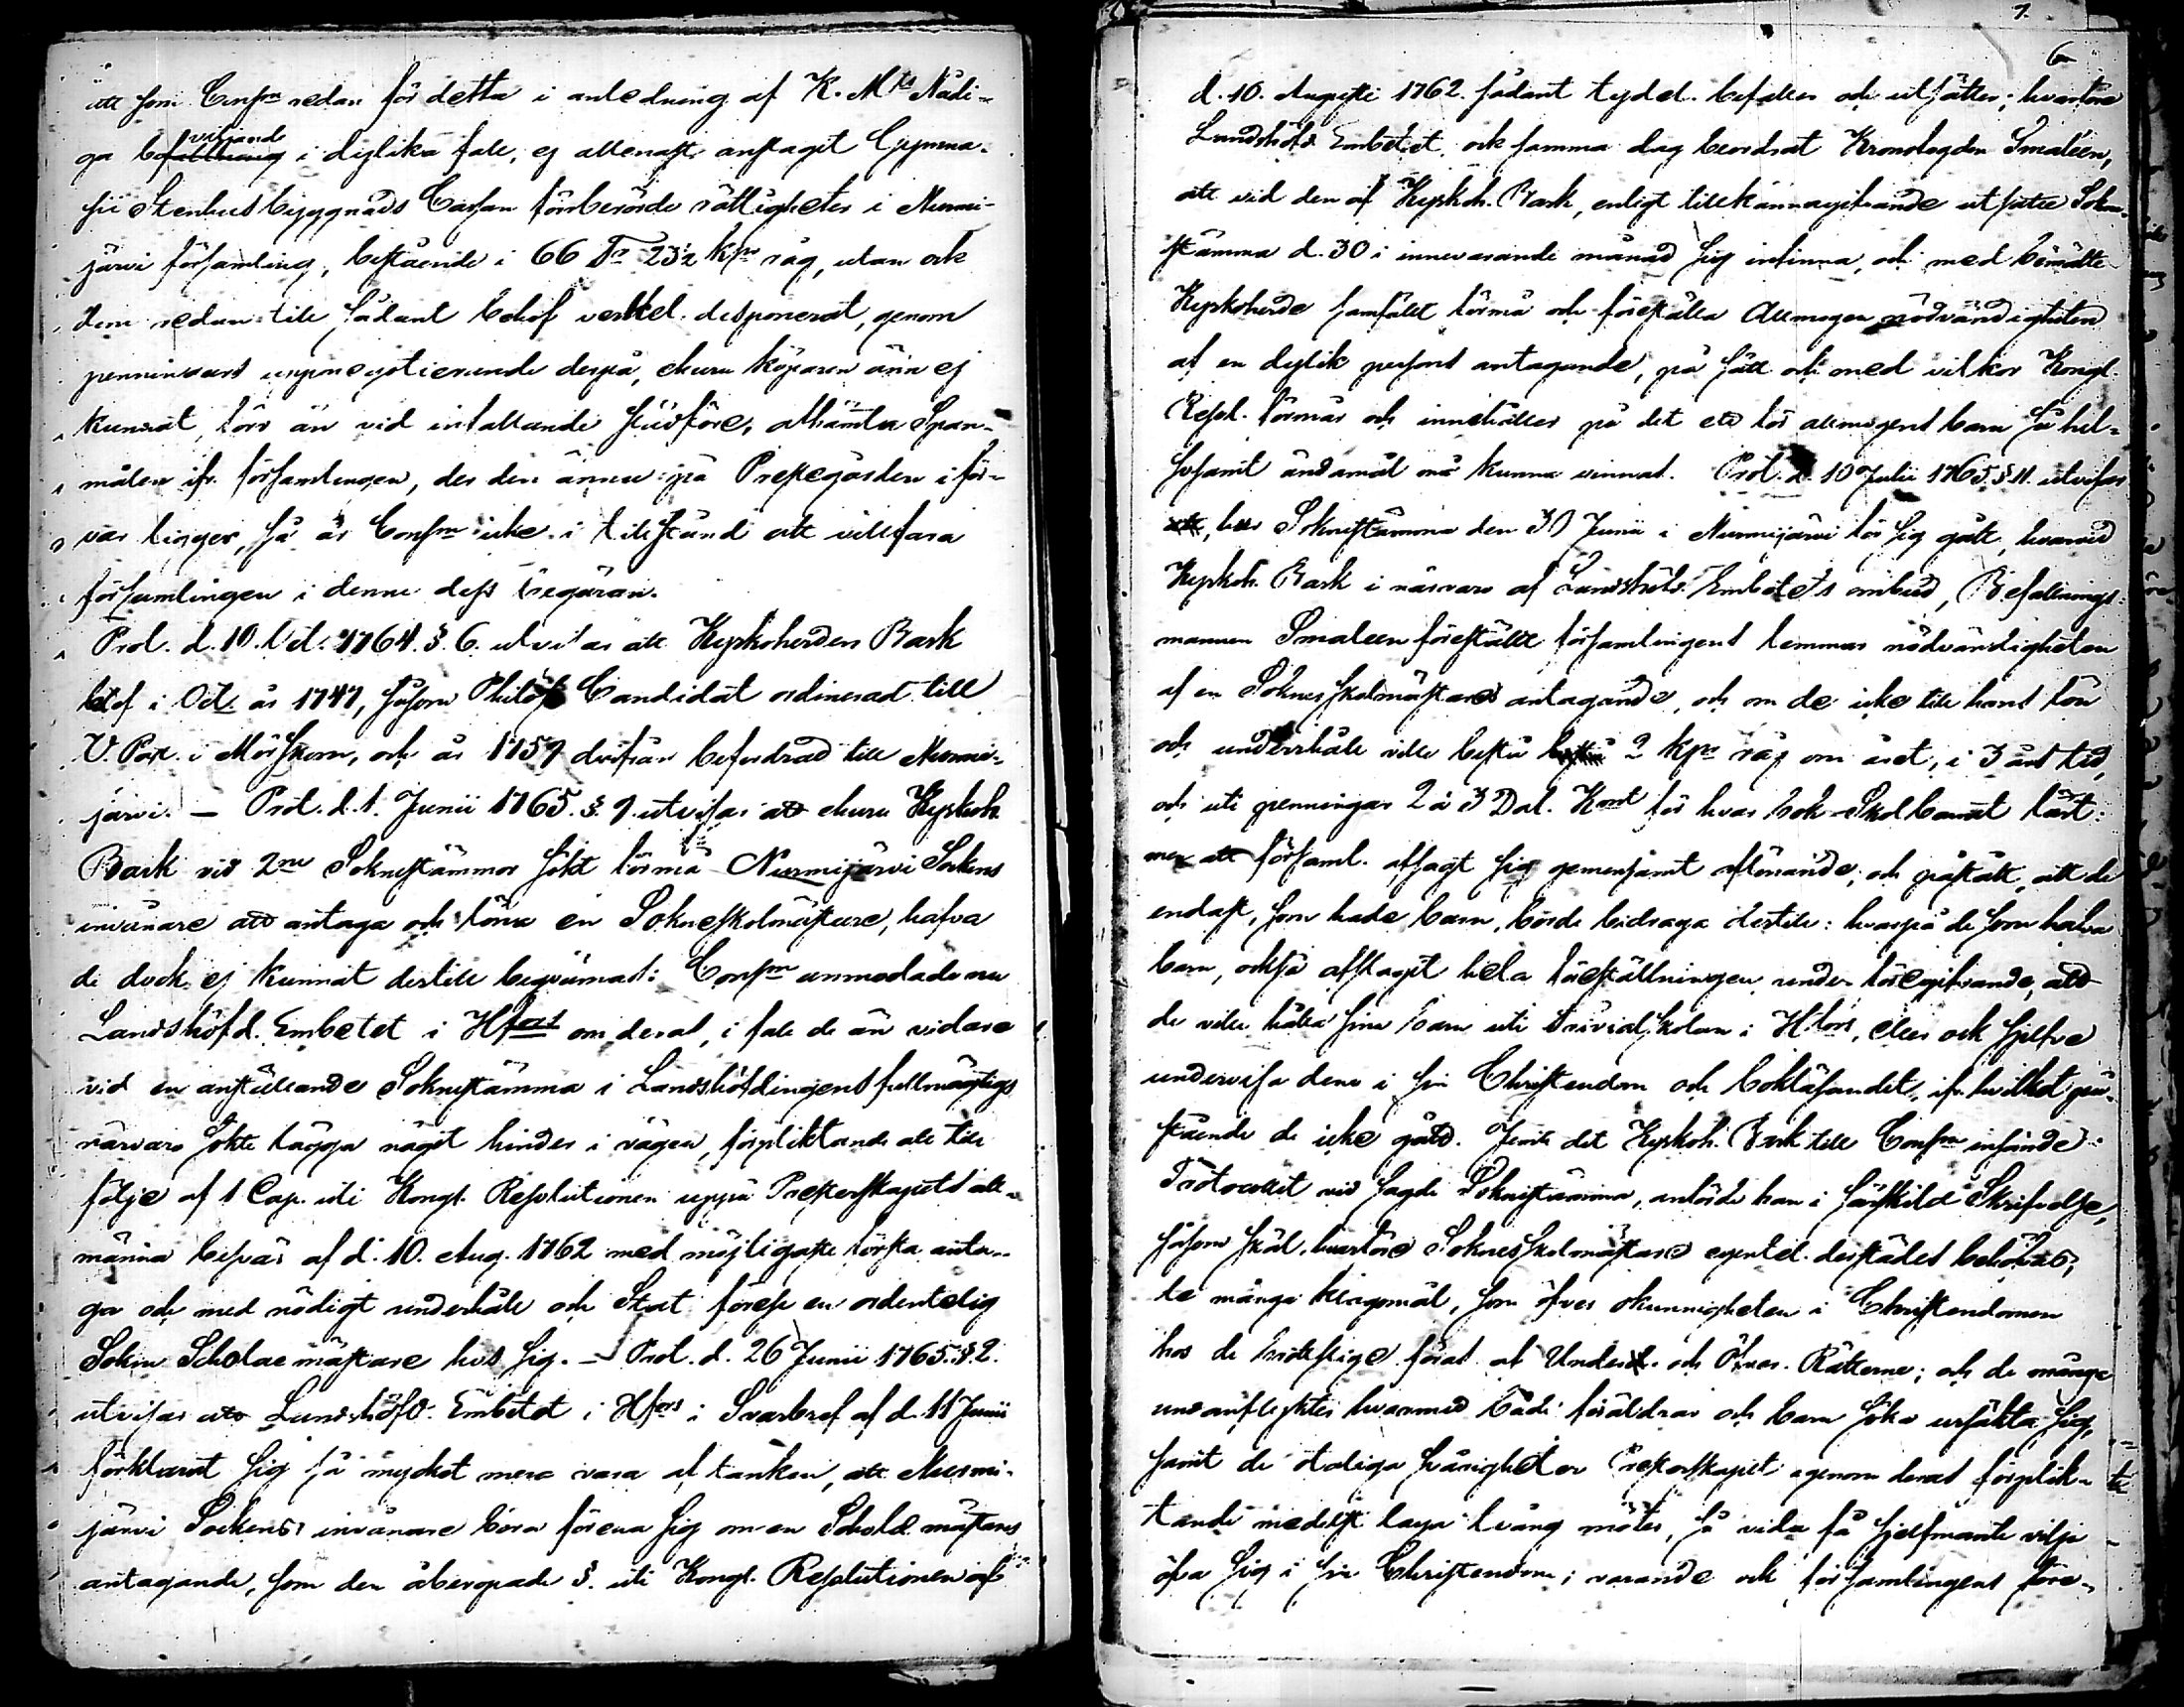 att som Consm redan för detta i anledning af K. Mts Nådi-
ga befallning viljande i dylika fall, ej allenast anslagit Gymna-
sii Stenhusbyggnads Cassan förberörde rättigheter i Nurmi-
järvi församling, bestående i 66 Tr 23½ kpr råg, utan ock
dem redan till sådant behof verkel. disponerat, genom
penningars uppnegotierande derpå, ehuru köparen änn ej
kunnat, förr än vid infallande slädföre, afhämta Span-
målen ifr. församlingen, der den ännu på Prestegården i för-
var ligger, så är Consm icke i tillstånd att villfara
församlingen i denne dess begäran.
Prot. d. 10. Oct. 1764. §. 6. utvisar att Kyrkoherden Bark
blef i Oct. år 1747, såsom Philos. Candidat ordinerad till
V. Past. i Mörskom, och år 1757 derifrån befordrad till Nurmi-
järvi. — Prot. d. 1. Junii 1765. §. 7. utvisar att ehuru Kyrkoh.
Bark vid 2ne Soknestämmor sökt förmå Nurmijärvi Sokens
invånare att antaga och löna en Sokneskolmästare, hafva
de dock ej kunnat dertill beqvämas: Consm anmodade nu
Landshöfd. Embetet i Hfors om deras, i fall de än vidare
vid en anställande Soknestämma i Landshöfdingens fullmägtiges
närvaro sökte lägga någit hinder i vägen, förpliktande att till
följe af 1 Cap. uti Kongl. Resolutionen uppå Presterskapets all-
männa besvär af d. 10. Aug. 1762 med möjligaste första anta-
ga och med nödigt underhåll och Stat förese en ordentelig
Sokne Scholae mästare hos sig. — Prot. d. 26 Junii 1765. §. 2.
utvisar att Landshöfd. Embetet i Hfors i Svarbref af d. 11 Junii
förklarat sig så mycket mera vara af tanken, att Nurmi-
järvi Sockens invånare böra förena sig om en Schole mästares
antagande, som den åberopade §. uti Kongl. Resolutionen af
7.
6
d. 10. Augusti 1762. sådant tydel. befaller och utsätter; hvarföre
Landshöfd. Embetet, ock samma dag beordrat Kronofogden Smaleen,
att vid den af Kyrkoh. Bark, enligt tillkännagifvande utsatte Sokne-
stämma d. 30 i innevarande månad sig infinna, och med bemälte
Kyrkoherde samfält förmå och föreställa Allmogen nödvändigheten
af en dylik persons antagande, på sätt och med vilkor Kongl.
Resol. förmår och innehåller på det ett för allmogens barn så hel-
sosamt ändamål må kunna vinnas. Prot. d. 10 Julii 1765. §. 11. utvisar
att, hur Soknestämma den 30 Junii i Nurmijärvi för sig gått, hvarvid
Kyrkoh. Bark i närvaro af Landshöfd. Embetets ombud, Befallnings-
mannen Smaleen föreställt församlingens lemmar nödvändigheten
af en Sokneskolmästares antagande, och om de icke till hans lön
och underhåll ville bestå 2 kpr råg om året, i 3 års tid,
och uti penningar 2 à 3 Dal. Kmt för hvar bok Skolbarnet lärt:
men att församl. afsagt sig gemensamt aflönande, och påstått, att de
endast, som hade barn, borde bidraga dertill: hvarpå de som hafva
barn, också afslagit hela föreställningen under föregifvande, att
de ville hålla sine barn uti TrivialSkolan i Hfors, eller ock sjelfve
undervisa dem i sin Christendom och bokläsandet, ifr. hvilket på-
stående de icke gått. Jemte det Kyrkoh. Bark till Consm insände
Protocollet vid sagde Soknestämma, anförde han i särskild Skrifvelse,
såsom skäl, hvarföre Sokneskolmästare egentel. derstädes behöfves,
te många klagomål, som öfver okunnigheten i Christendomen
hos de brottslige förat. af Under- och Öfver- Rätterne; och de många
undanflykter hvarmed både föräldrar och barn söka ursäkta sig,
samt de otaliga svårigheter Presterskapet genom deras förplik-
tande medelst laga tvång möter, så vida få sjelfmante vilja
öfva sig i sin Christendom; varande ock församlingens före-